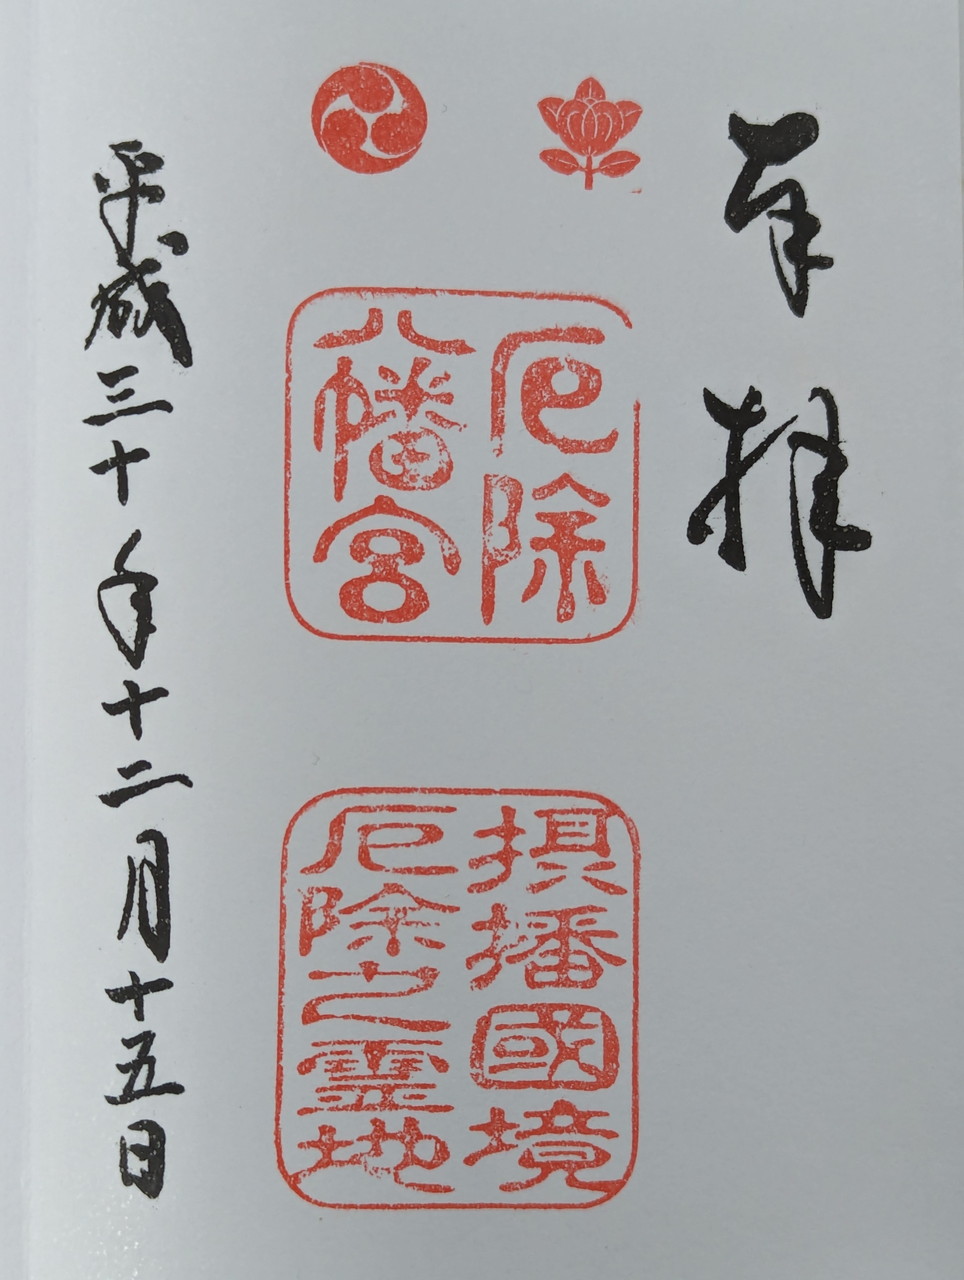 奉拝
厄除
八幡宮
摂播國境
厄除之霊地
平成三十年十二月十五日